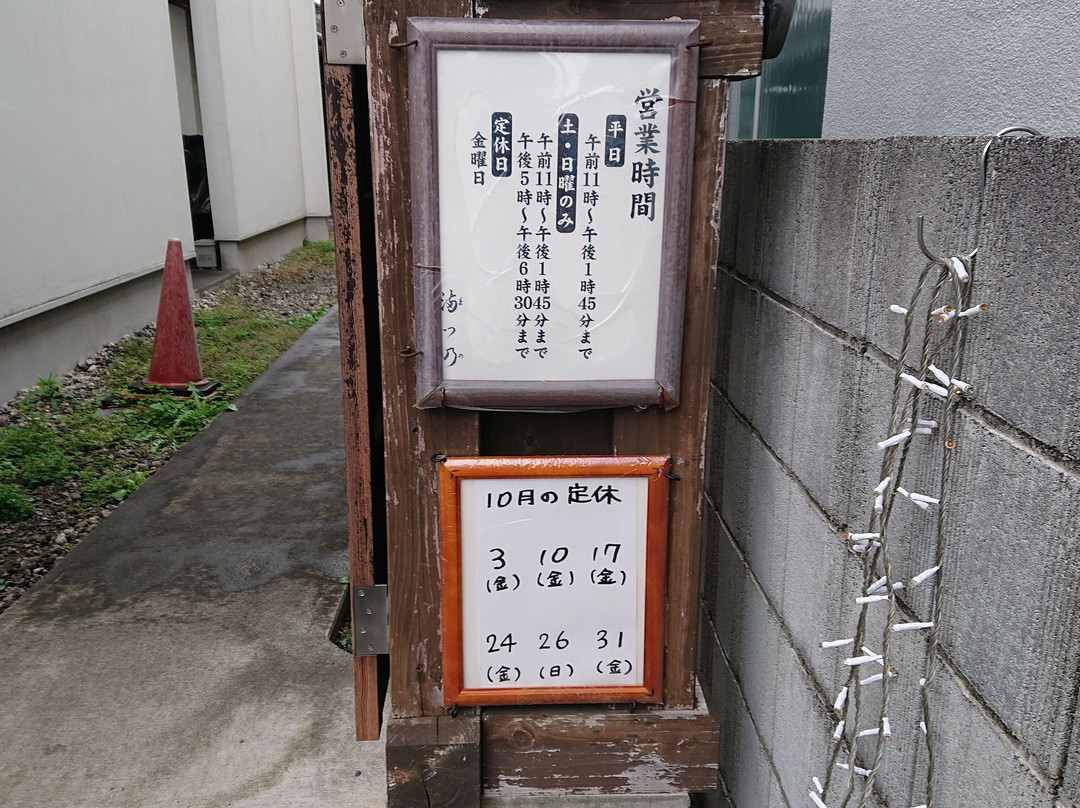 営業時間
平日
午前11時〜午後1時45分まで
土・日曜のみ
午前11時〜午後1時45分まで
午後5時〜午後6時30分まで
定休日
金曜日
10月の定休
3 10 17
(金) (金) (金)
24 26 31
(金) (日) (金)